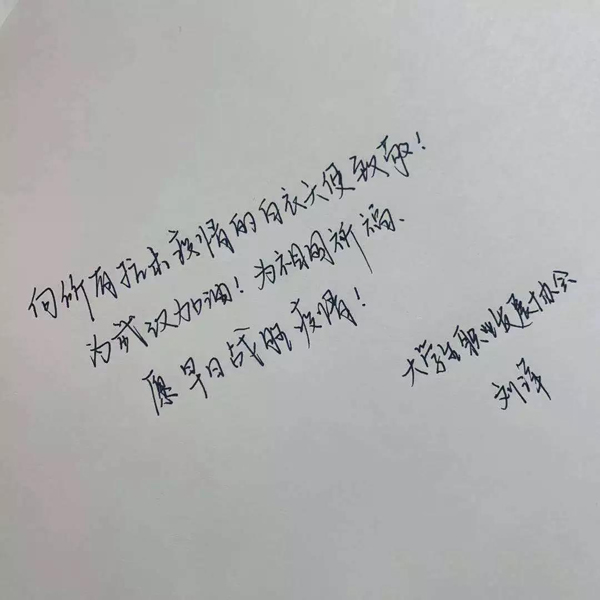 向所有抗击疫情的白衣天使致敬!
为武汉加油!为祖国祈福、
愿早日战胜疫情!
大学生职业发展协会
刘洋